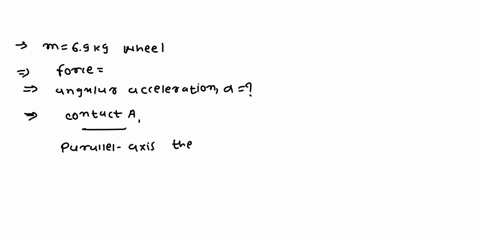 → m = 6.9 kg wheel
⇒ force =
⇒ angular acceleration, α = ?
⇒ contact A,
Parallel-axis the